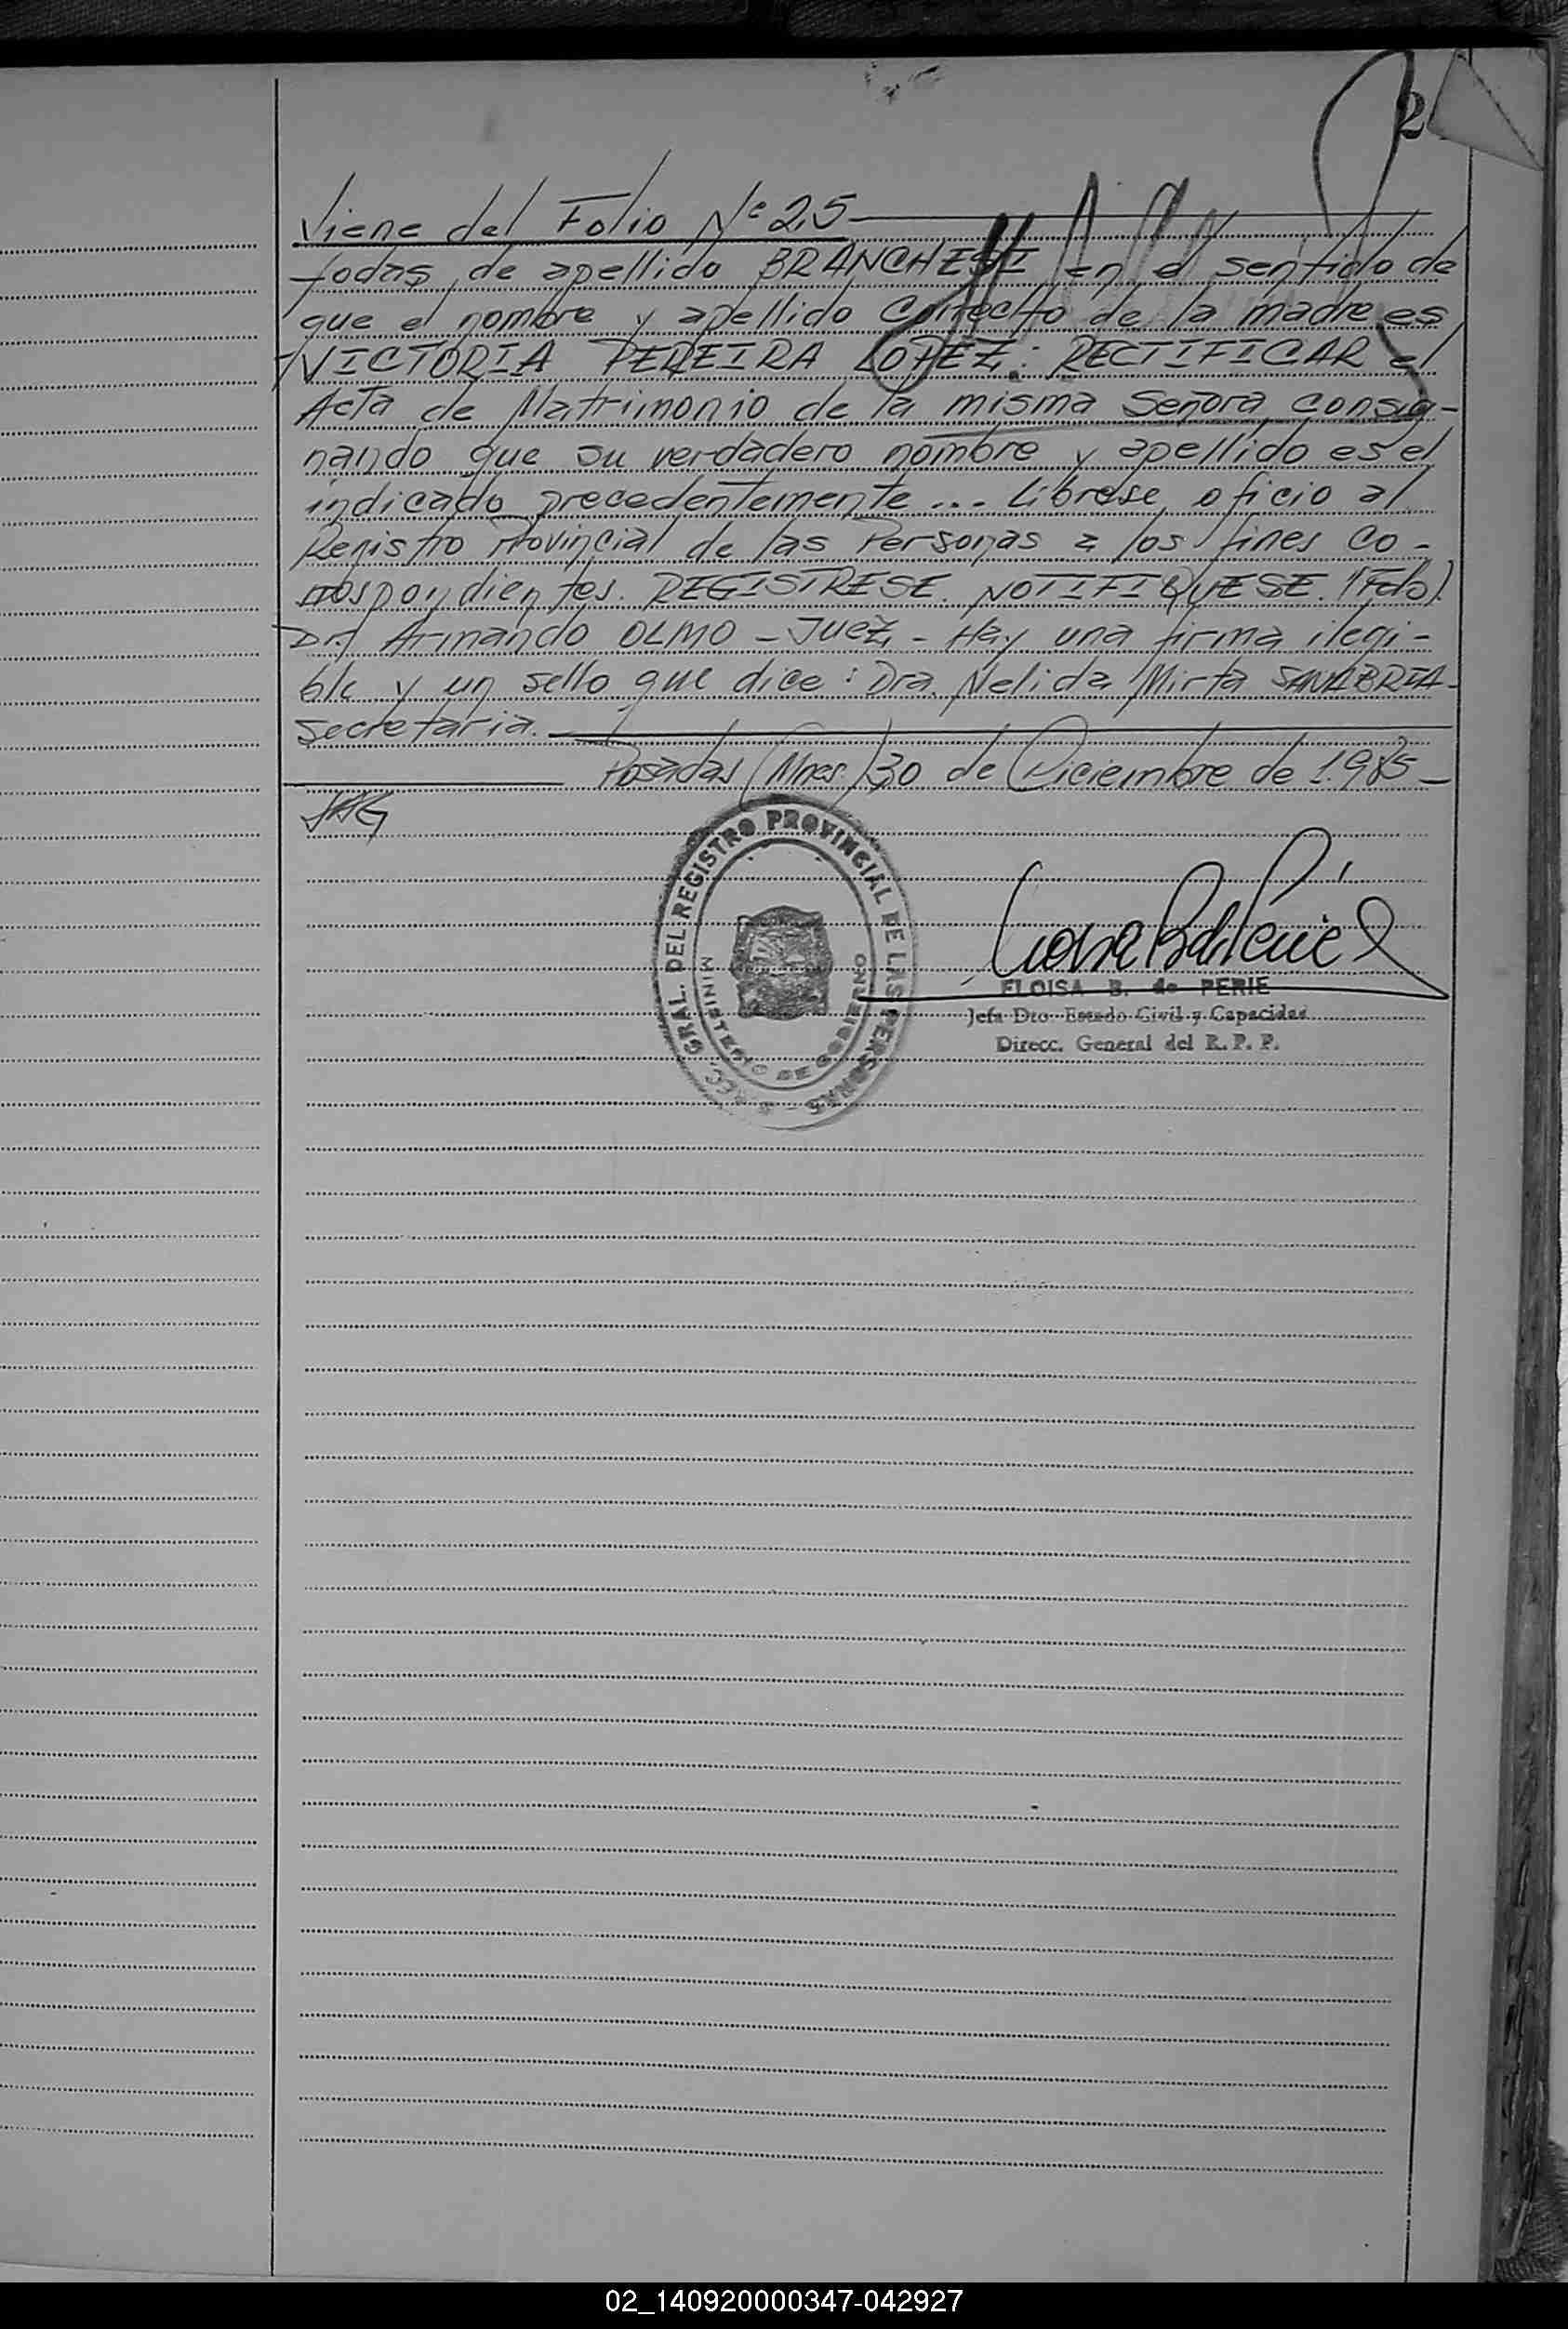 2
Viene del Folio Nº 25
todas de apellido BRANCHESI en el sentido de
que el nombre y apellido correcto de la madre es
VICTORIA PEREIRA LOPEZ: RECTIFICAR el
Acta de Matrimonio de la misma Señora consig-
nando que su verdadero nombre y apellido es el
indicado precedentemente ... Librese oficio al
Registro Provincial de las Personas a los fines co-
rrespondientes. REGISTRESE. NOTIFIQUESE. (Fdo)
Dr. Armando OLMO - Juez - Hay una firma ilegi-
ble y un sello que dice: Dra. Nelida Mirta SANABRIA
Secretaria.
Posadas (Mnes.) 30 de Diciembre de 1.985
GRAL. DEL REGISTRO PROVINCIAL DE LAS PERSONAS
MINISTERIO DE GOBIERNO
ELOISA B. de PERIE
Jefa Dto. Estado Civil y Capacidad
Direcc. General del R. P. P.
02_140920000347-042927